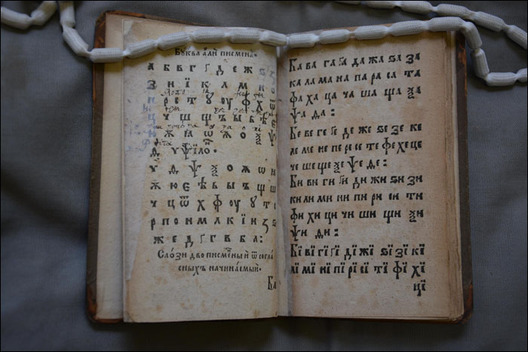 а б в г ґ д е ж ѕ
з и ї к л м н
ц ч ш щ ъ ы ь ѣ
ѵ ѳ ѱ ѯ ѡ
ж ю є ѣ ь ы ъ щ ш
ч ц ѿ х ф ѹ у т
р п о н м л к ї и з ѕ
ж е д ґ г в б а :
Слози двописме́нныи ѿ согла
сныхъ начинаемыи.
Ба
Ба ва га ґа да жа ѕа за
ка ла ма на па ра са та
фа ха ца ча ша ща ѯа
ѱа ѳа :
Бе ве ге ґе де же ѕе зе ке
ле ме не пе ре се те фе хе це
че ше ще ѯе ѱе ѳе :
Би ви ги ґи ди жи ѕи зи
ки ли ми ни пи ри си ти
фи хи ци чи ши щи ѯи
ѱи ѳи :
Бї вї гї ґї дї жї ѕї зї кї
лї мї нї пї рї сї тї фї хї
цї